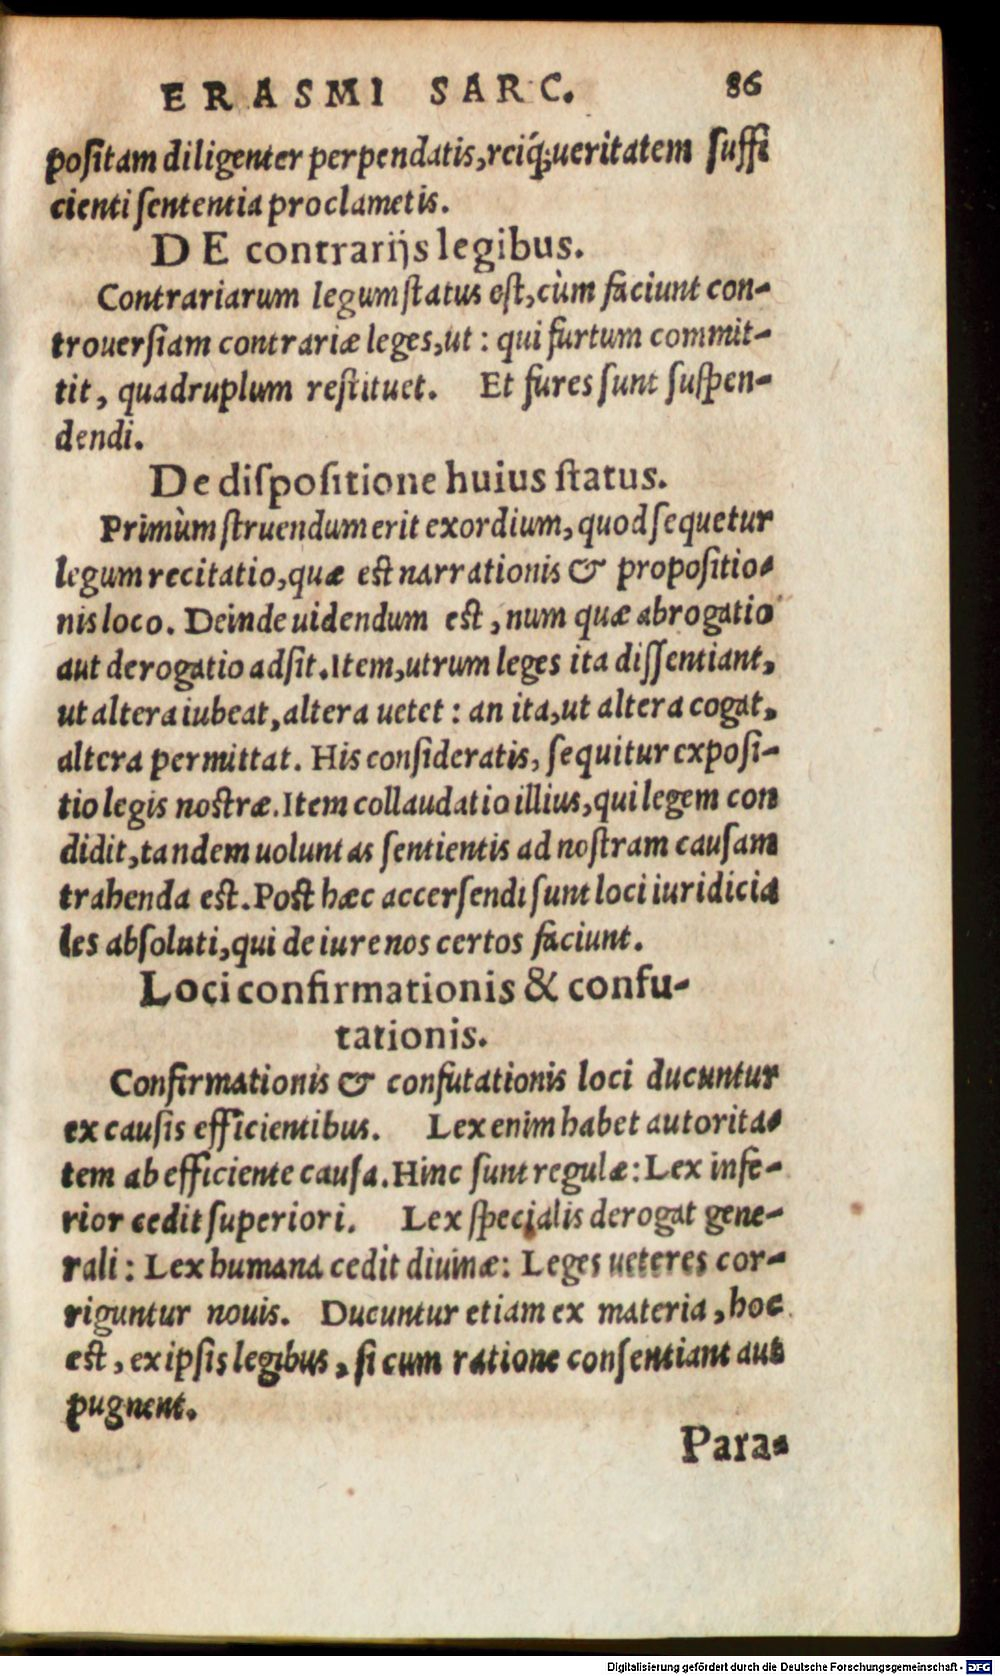 ERASMI SARC. 86
positam diligenter perpendatis, reiq́; ueritatem suffi
cienti sententia proclametis.
DE contrarijs legibus.
Contrariarum legum status est, cùm faciunt con-
trouersiam contrariæ leges, ut: qui furtum commit-
tit, quadruplum restituet. Et fures sunt suspen-
dendi.
De dispositione huius status.
Primùm struendum erit exordium, quod sequetur
legum recitatio, quæ est narrationis & propositio-
nis loco. Deinde uidendum est, num quæ abrogatio
aut derogatio adsit. Item, utrum leges ita dissentiant,
ut altera iubeat, altera uetet: an ita, ut altera cogat,
altera permittat. His consideratis, sequitur exposi-
tio legis nostræ. Item collaudatio illius, qui legem con
didit, tandem uoluntas sentientis ad nostram causam
trahenda est. Post hæc accersendi sunt loci iuridicia
les absoluti, qui de iure nos certos faciunt.
Loci confirmationis & confu-
tationis.
Confirmationis & confutationis loci ducuntur
ex causis efficientibus. Lex enim habet autorita-
tem ab efficiente causa. Hinc sunt regulæ: Lex infe-
rior cedit superiori. Lex specialis derogat gene-
rali: Lex humana cedit diuinæ: Leges ueteres cor-
riguntur nouis. Ducuntur etiam ex materia, hoc
est, ex ipsis legibus, si cum ratione consentiant aut
pugnent.
Para-
Digitalisierung gefördert durch die Deutsche Forschungsgemeinschaft - DFG